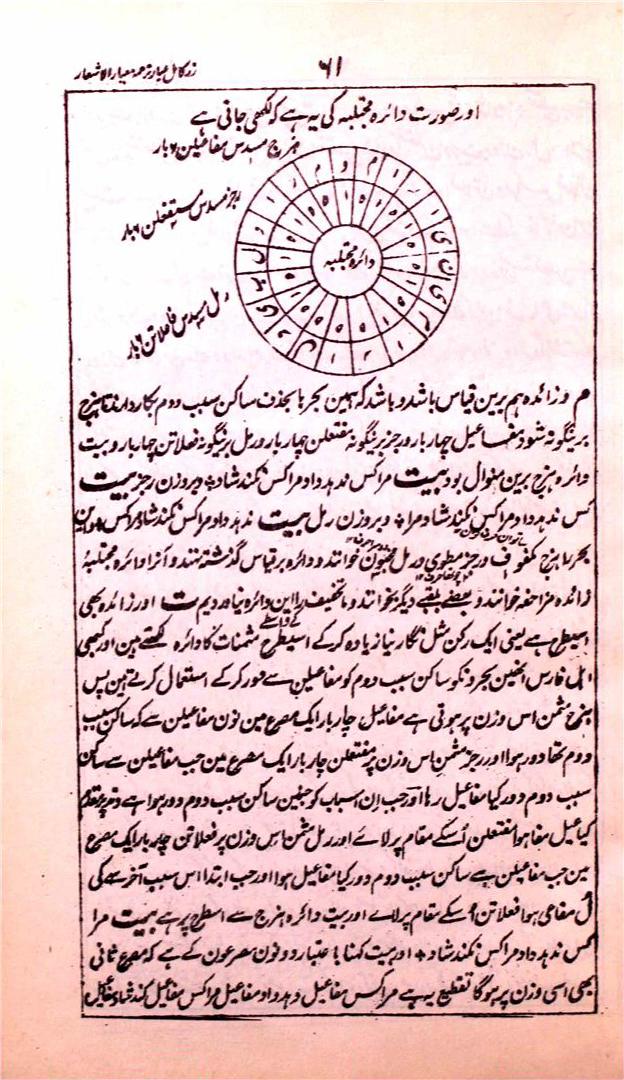 زر کامل عیار ترجمہ معیار الاشعار
۶۱
اور صورت دائرہ مجتلبہ کی یہ ہے کہ لکھی جاتی ہے
ہزج مسدس مفاعیلن ۶ بار
رجز مسدس مستفعلن ۶ بار
رمل مسدس فاعلاتن ۶ بار
دائرہ مجتلبہ
م و زائدہ ہم برین قیاس باشد و باشد کہ ہمین بحر ہا بحذف ساکن سبب دوم بکار دارند تا ہزج
برینگونہ شود مفاعیل چہار بار و رجز برینگونہ مفتعلن چہار بار و رمل برینگونہ فعلاتن چہار بار و بیت
دائرہ ہزج برین منوال بود بیت مراکس ندہد داد مراکس نکند شاد و بر وزن رجز بیت
کس ندہد داد مراکس نکند شاد مرا و بر وزن رمل بیت ندہد داد مراکس نکند شاد مراکس و این
بحر ہا ہزج مکفوف و رجز مطوی و رمل مخبون خوانند و دائرہ بر قیاس گذشتہ نہند و آنرا دائرہ مجتلبۂ
زائدہ مزاحفہ خوانند و بعضے بلقبے دیگر بخوانند و ما تخفیف را این دائرہ نیاوردیم ت اور زائدہ بھی
اسیطرح ہے یعنی ایک رکن مثل نگار نیاز یادہ کر کے اسیطرح مثمنات کا دائرہ لکھتے ہین اور کبھی
کے واسطے
اہل فارس انھین بحرونکو ساکن سبب دوم کو مفاعیلن سے دور کر کے استعمال کرتے ہین پس
ہزج مثمن اس وزن پر ہوتی ہے مفاعیل چار بار ایک مصرع مین نون مفاعیلن سے کہ ساکن سبب
دوم تھا دور ہوا اور رجز مثمن اس وزن پر مفتعلن چار بار ایک مصرع مین جب مفاعیلن سے ساکن
سبب دوم دور کیا مفاعیل رہا اور جب ان اسباب کو جنمین ساکن سبب دوم دور ہوا ہے وتد پر مقدم
کیا عیل مفا ہوا مفتعلن اُسکے مقام پر لائے اور رمل مثمن اس وزن پر فعلاتن چار بار ایک مصرع
مین جب مفاعیلن سے ساکن سبب دوم دور کیا مفاعیل ہوا اور جب ابتدا اس سبب آخر سے کی
ل مفاعی ہوا فعلاتن اُسکے مقام پر لائے اور بیت دائرہ ہزج سے اسطرح پر ہے بیت مرا
کس ندہد داد مراکس نکند شاد اور بیت کہنا با عتبار دونون مصرعون کے ہے کہ مصرع ثانی
بھی اسی وزن پر ہو گا تقطیع یہ ہے مراکس مفاعیل دہد داد مفاعیل مراکس مفاعیل کند شاد مفاعیل